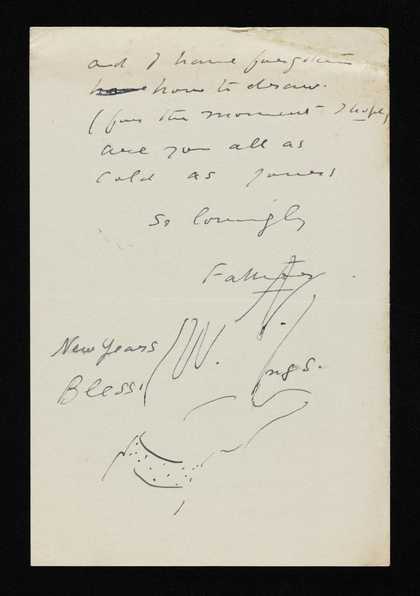 and I have forgotten
how to draw.
(for the moment I hope)
are you all as
cold as
So lovingly
Father
New Years
Bless. ngs.